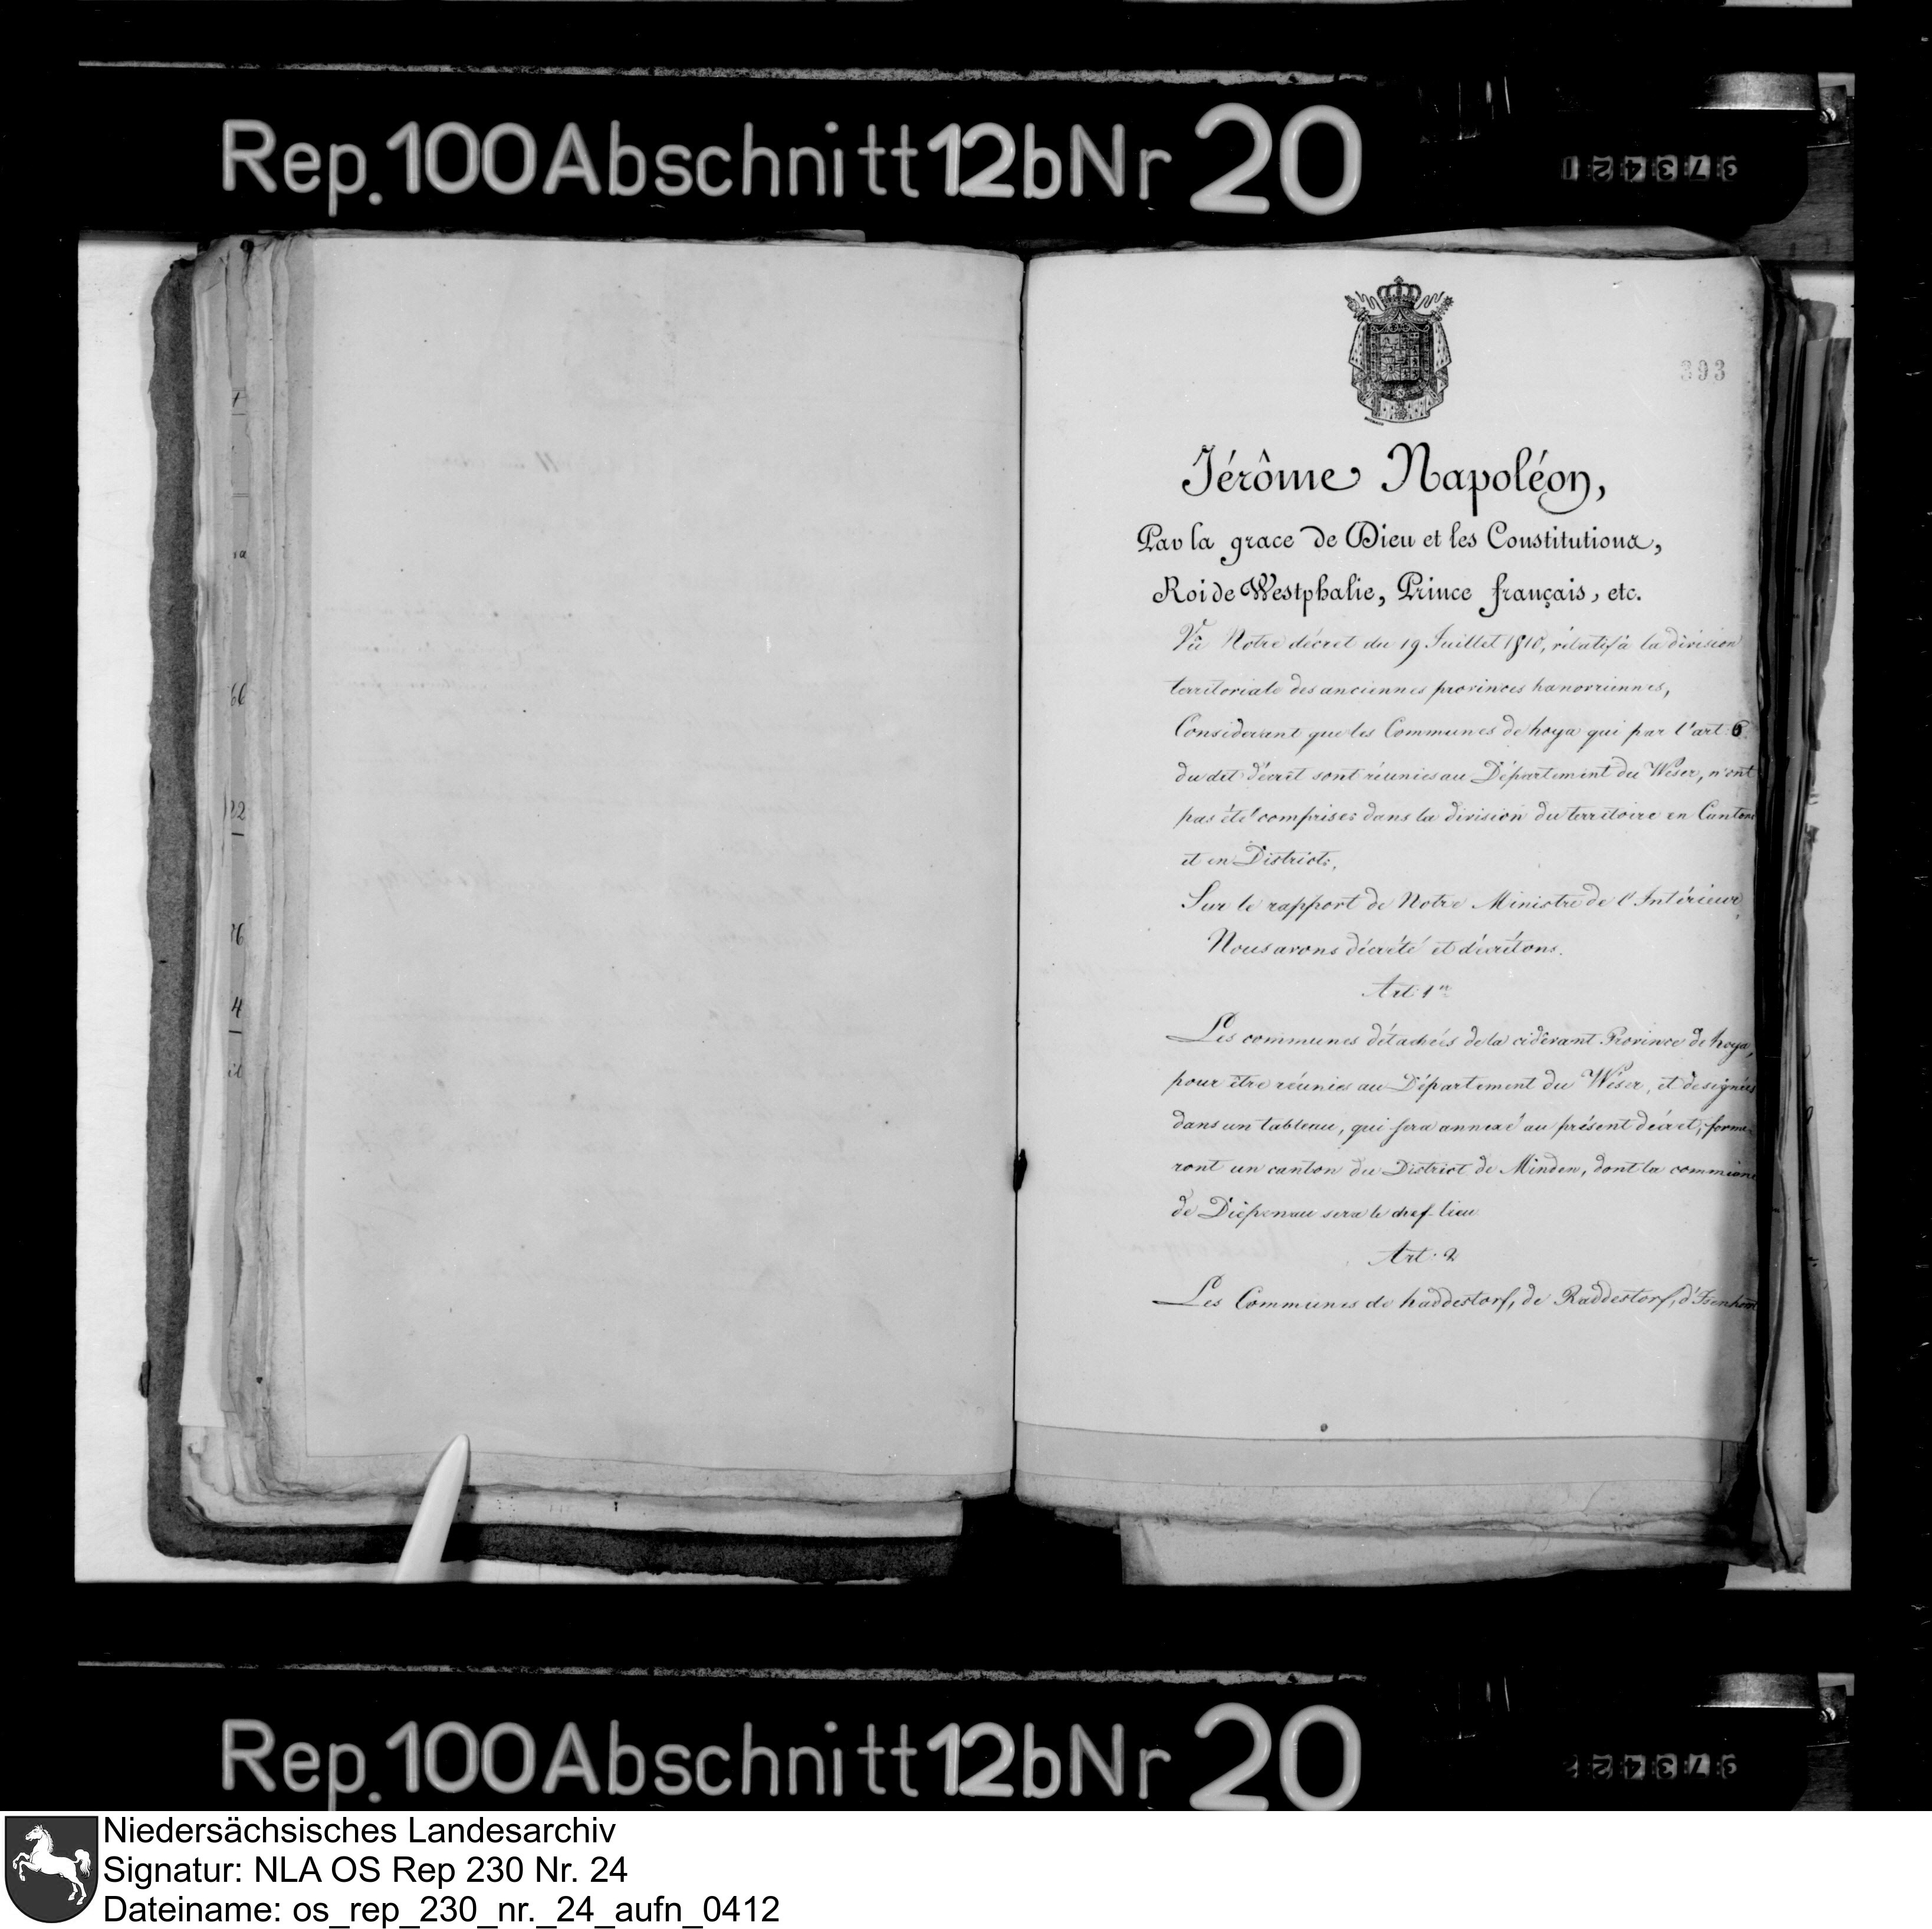 Rep. 100 Abschnitt 12b Nr 20
393
Jérôme Napoléon,
Par la grace de Dieu et les Constitutions,
Roi de Westphalie, Prince français, etc.
Vu Notre décret du 19 Juillet 1810, rélatif à la division
territoriale des anciennes provinces hanovriennes,
Considerant que les Communes de hoya qui par l'art. 6.
du dit décret sont réunies au Département du Weser, n'ont
pas été comprises dans la division du territoire en Cantons
et en Districts,
Sur le rapport de Notre Ministre de l'Intérieur,
Nous avons décrété et décrétons.
Art. 1er
Les communes détachées de la cidevant Province de hoya,
pour être réunies au Département du Wéser, et designées
dans un tableau, qui sera annexé au présent décret, forme-
ront un canton du District de Minden, dont la commune
de Diepenau sera le chef-lieu
Art. 2
Les Communes de haddestorf, de Raddestorf, d'Isenhorst
Rep. 100 Abschnitt 12b Nr 20
Niedersächsisches Landesarchiv
Signatur: NLA OS Rep 230 Nr. 24
Dateiname: os_rep_230_nr._24_aufn_0412